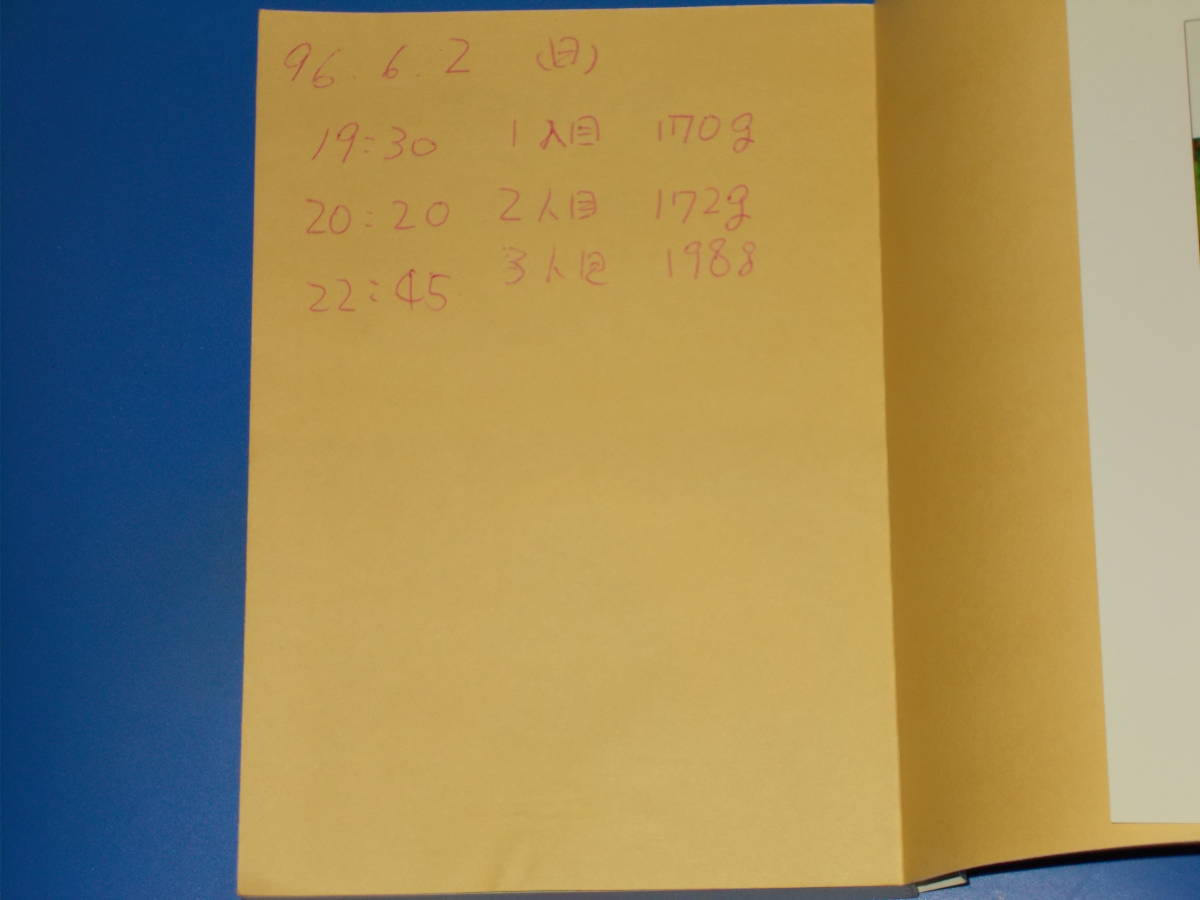 96.6.2 (日)
19:30 1人目 170g
20:20 2人目 172g
22:45 3人目 198g